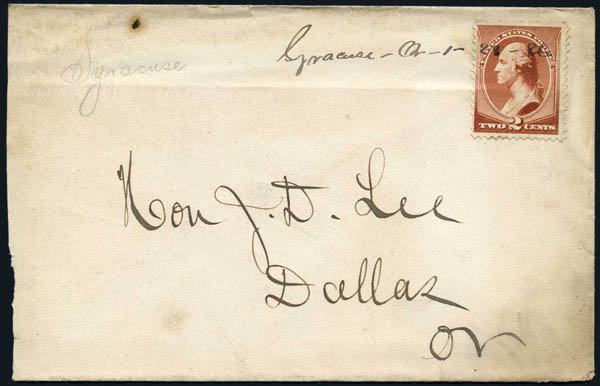 Syracuse - Or - 1 - 21 - 86
Syracuse
UNITED STATES POSTAGE
TWO 2 CENTS
Hon J. D. Lee
Dallas
Or